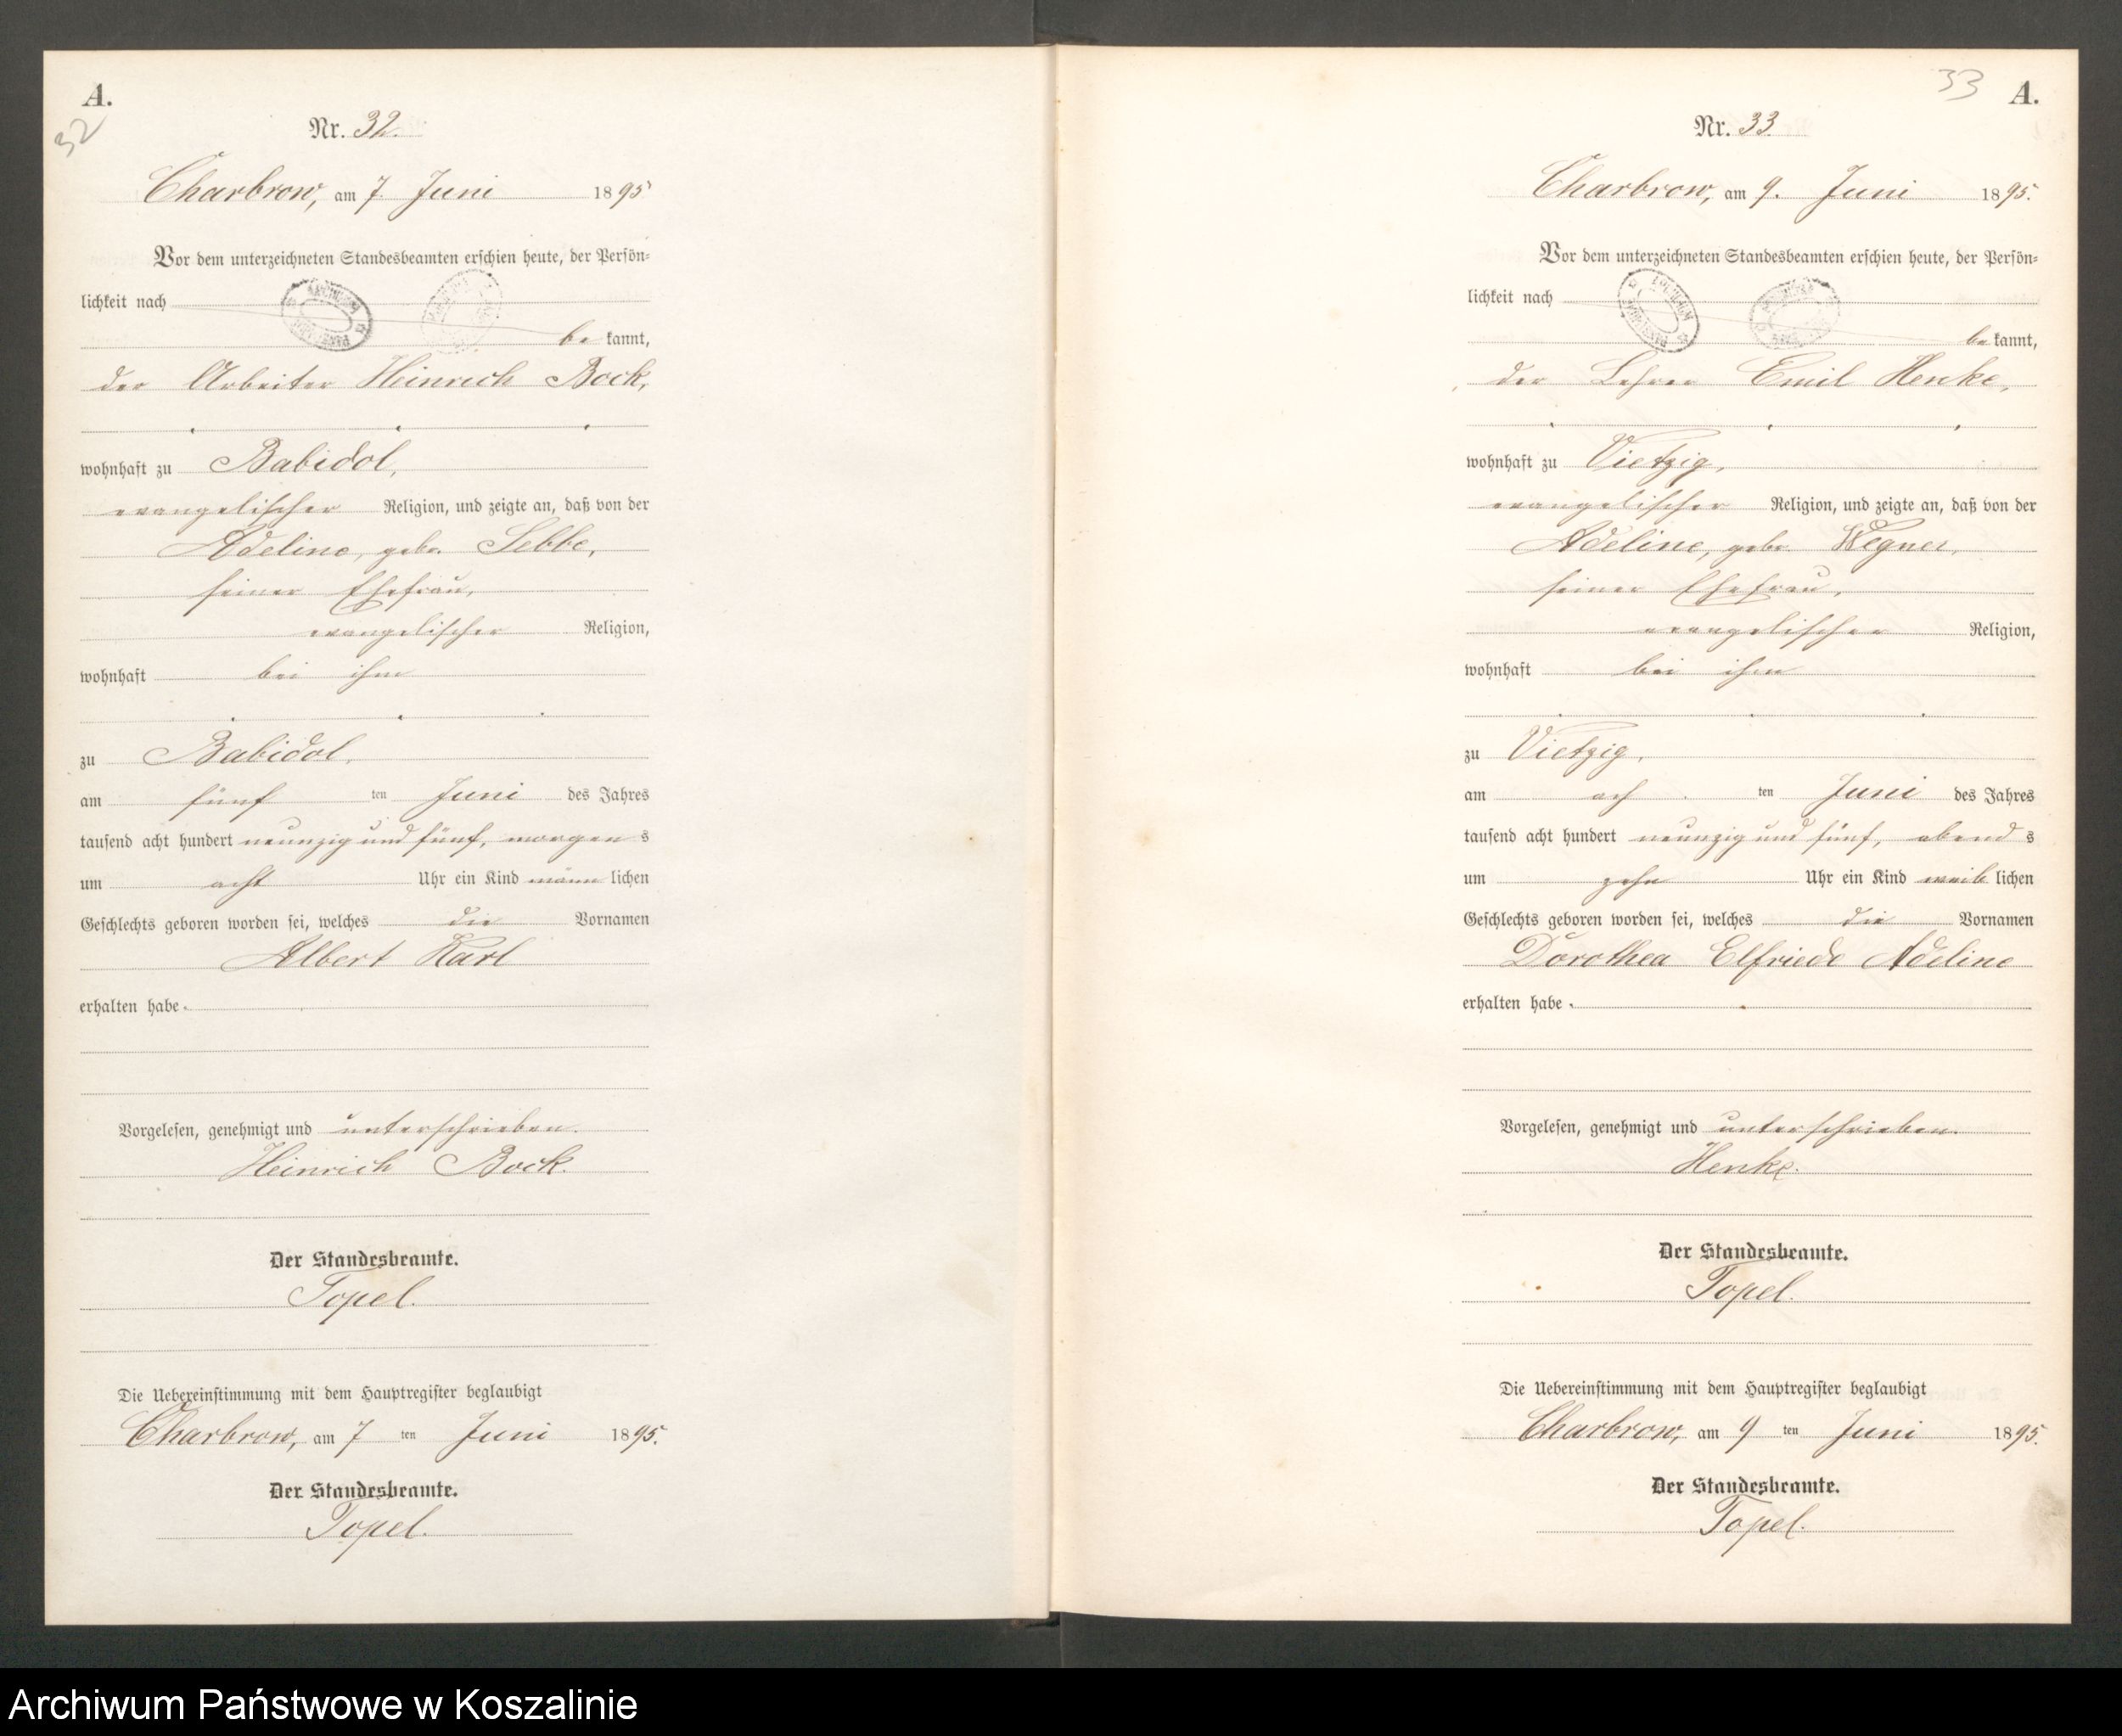 A.
32
Nr. 32.
Charbrow, am 7. Juni 1895
Vor dem unterzeichneten Standesbeamten erschien heute, der Persön-
lichkeit nach
be kannt,
der Arbeiter Heinrich Bock,
wohnhaft zu Babidol,
evangelischer Religion, und zeigte an, daß von der
Adeline, geb. Sebbe,
seiner Ehefrau,
evangelischer Religion,
wohnhaft bei ihm
zu Babidol,
am fünf ten Juni des Jahres
tausend acht hundert neunzig und fünf, morgen s
um acht Uhr ein Kind männ lichen
Geschlechts geboren worden sei, welches die Vornamen
Albert Karl
erhalten habe.
Vorgelesen, genehmigt und unterschrieben.
Heinrich Bock.
Der Standesbeamte.
Topel.
Die Uebereinstimmung mit dem Hauptregister beglaubigt
Charbrow, am 7 ten Juni 1895.
Der Standesbeamte.
Topel.
33
A.
Nr. 33
Charbrow, am 9. Juni 1895.
Vor dem unterzeichneten Standesbeamten erschien heute, der Persön-
lichkeit nach
be kannt,
der Lehrer Emil Henke,
wohnhaft zu Vietzig,
evangelischer Religion, und zeigte an, daß von der
Adeline, geb. Wegner,
seiner Ehefrau,
evangelischer Religion,
wohnhaft bei ihm
zu Vietzig,
am ach ten Juni des Jahres
tausend acht hundert neunzig und fünf, abend s
um zehn Uhr ein Kind weib lichen
Geschlechts geboren worden sei, welches die Vornamen
Dorothea Elfriede Adeline
erhalten habe.
Vorgelesen, genehmigt und unterschrieben.
Henke.
Der Standesbeamte.
Topel.
Die Uebereinstimmung mit dem Hauptregister beglaubigt
Charbrow, am 9 ten Juni 1895.
Der Standesbeamte.
Topel.
Archiwum Państwowe w Koszalinie